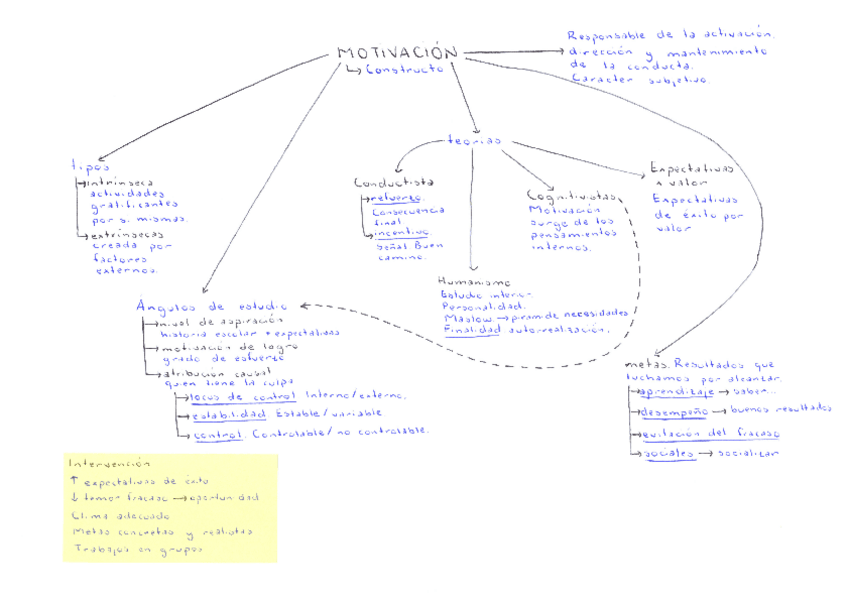 MOTIVACIÓN
Constructo
Responsable de la activación,
dirección y mantenimiento
de la conducta.
Carácter subjetivo.
tipos
intrínseca
actividades
gratificantes
por si mismas.
extrínsecas
creada por
factores
externos.
teorías
Conductista
refuerzo.
Consecuencia
final
incentivo
Señal Buen
camino.
Humanismo
Estudio interior.
Personalidad.
Maslow. → piramide necesidades
Finalidad autorrealización.
Cognitivistas
Motivación
surge de los
pensamientos
internos.
Expectativas
x valor
Expectativas
de éxito por
valor
Ángulos de estudio
nivel de aspiración
historia escolar + expectativas
motivación de logro
grado de esfuerzo
atribución causal
quien tiene la culpa
locus de control Interno/externo.
estabilidad Estable/variable
control. Controlable/no controlable.
metas. Resultados que
luchamos por alcanzar.
aprendizaje → saber...
desempeño → buenos resultados
evitación del fracaso
sociales → socializar
Intervención
↑ expectativas de éxito
↓ temor fracaso → oportunidad
Clima adecuado
Metas concretas y realistas
Trabajos en grupos